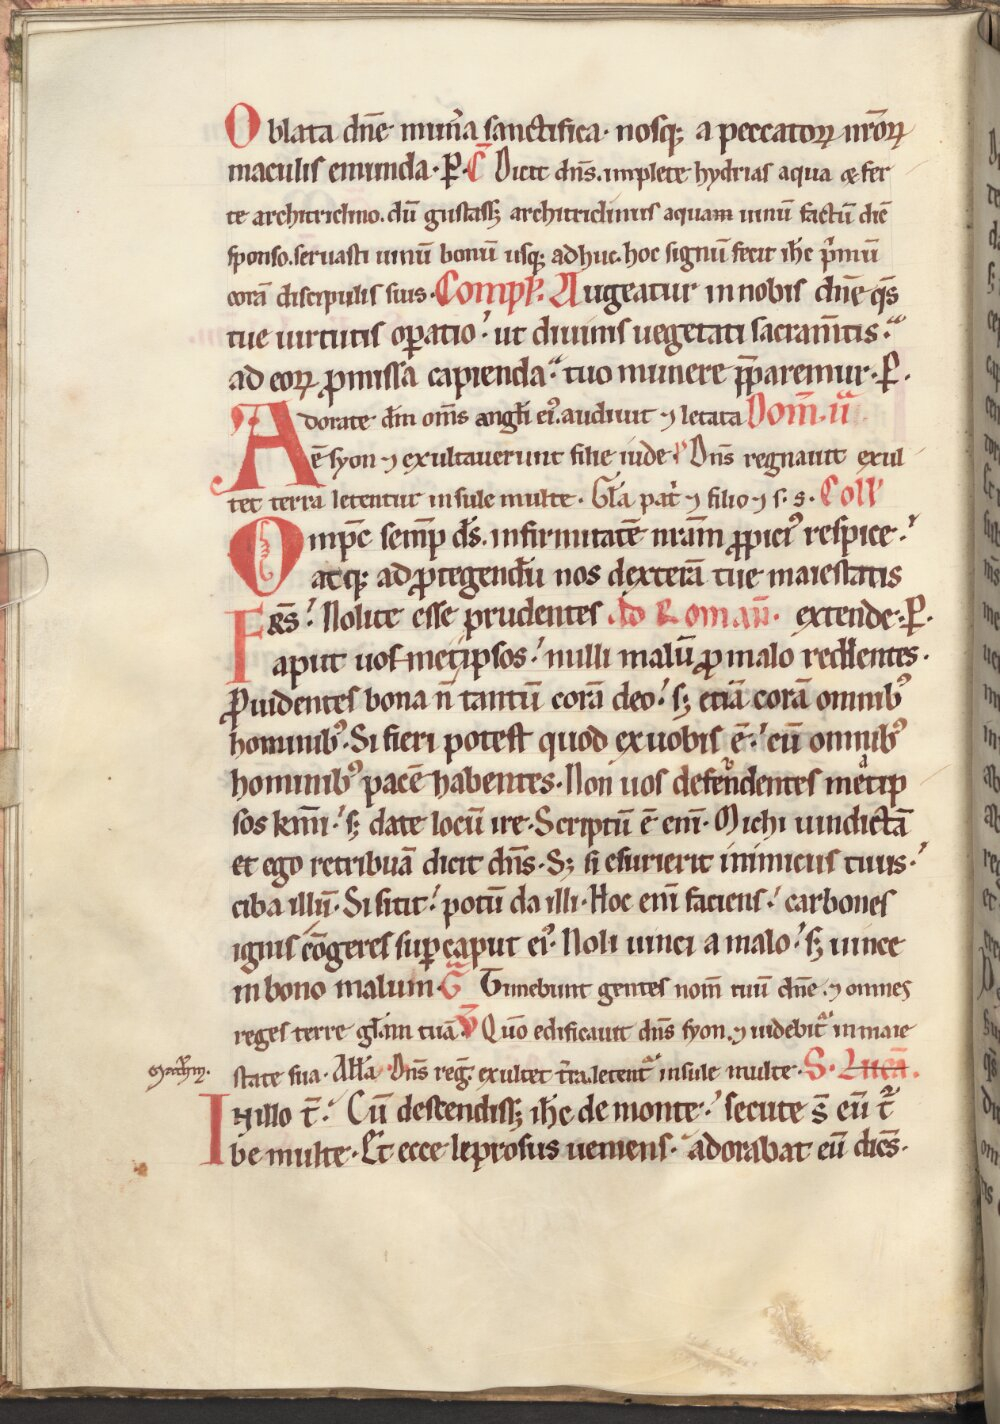 Oblata dn̄e mun̄a sanctifica· nosq; a peccatoꝝ nr̄oꝝ
maculis emunda·P̲·C̄ Dicit dn̄s. implete hydrias aqua & fer
te architriclino. dū gustass; architriclinus aquam uinū factū dic̄
sponso. seruasti uinū bonū usq; adhuc. hoc signū fecit ih̄c p̄mū
corā discipulis suis· Compl̄. Augeatur in nobis dn̄e q̄s
tue uirtutis oꝑatio: ut diuinis uegetati sacram̄tis:
ad eoꝝ ꝓmissa capienda: tuo munere p̄paremur·P̲·
Adorate dm̄ om̄s angl̄i ei᾿. audiuit ⁊ letata Dom̄. iiᵃ
ē syon ⁊ exultauerunt filie iude ℣ Dn̄s regnauit exul
tet terra letentur insule multe· Gl̄a pat̄ ⁊ filio ⁊ s. s. Coll᾿
Omp̄c semp̄ d̄s. infirmitatē nr̄am ꝓpici᾿ respice:
atq; ad ꝓtegendū nos dexterā tue maiestatis
Fr̄s: Nolite esse prudentes Ad Roman̄· extende·P̲·
aput uosmetipsos: nulli malū ꝓ malo reddentes.
Ꝓuidentes bona n̄ tantū corā deo: s; etiā corā omnib᾿
hominib᾿. Si fieri potest quod ex uobis ē: cū omnib᾿
hominib᾿ pacē habentes· Non uos defendentes metip
sos km̄i: s; date locū ire· Scriptū ē eni̅· Michi uindictā
et ego retribuā dicit dn̄s· S; si esurierit inimicus tuus:
ciba illū· Si sitit: potū da illi· Hoc eni̅ faciens: carbones
ignis cōgeres suꝑ caput ei᾿· Noli uinci a malo: s; uince
in bono malum· G̃ Timebunt gentes nom̄ tuū dn̄e. ⁊ omnes
reges terre gl̄am tuā. ℣ Quō edificauit dn̄s syon. ⁊ uidebit᾿ in maie
state sua· All̄a· Dn̄s reḡ. exultet t̄ra. letent᾿ insule multe· S· Lucā.
Math̄m.
In illo t̄: Cū descendiss; ih̄c de monte: secute s̄ eū t᾿
be multe· Et ecce leprosus ueniens· adorabat eū dic̄s·